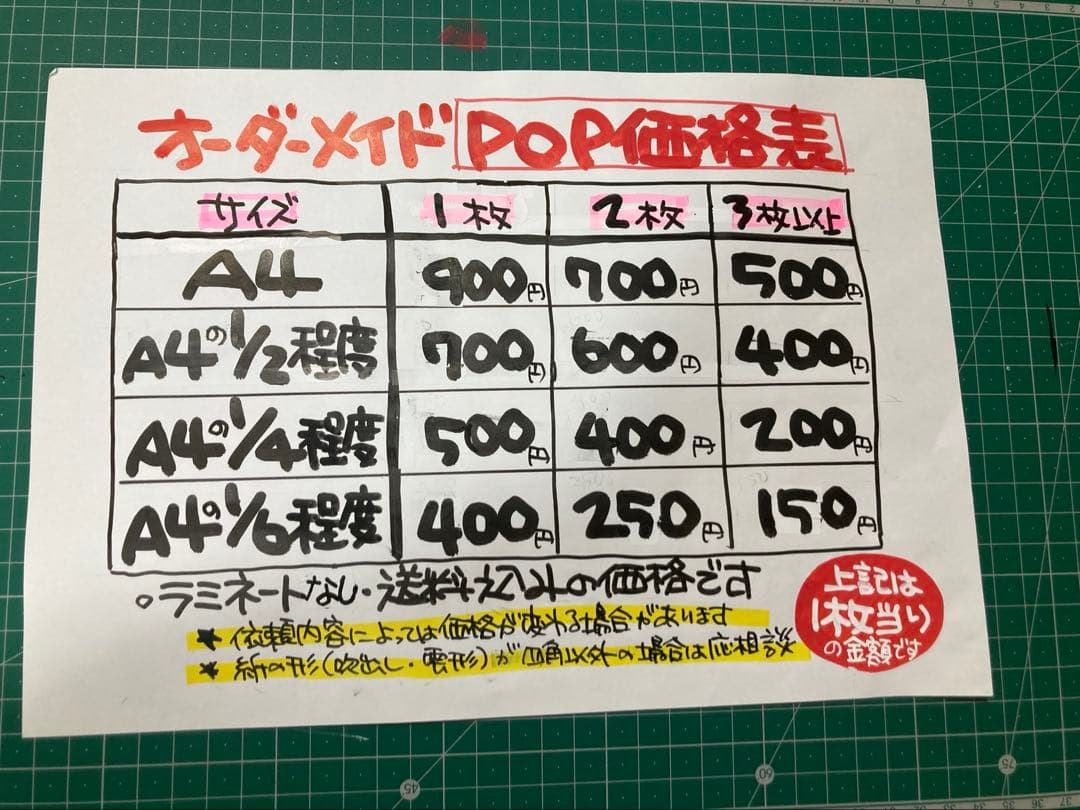 オーダーメイド POP価格表
サイズ 1枚 2枚 3枚以上
A4 900円 700円 500円
A4の1/2程度 700円 600円 400円
A4の1/4程度 500円 400円 200円
A4の1/6程度 400円 250円 150円
○ラミネートなし・送料込みの価格です
★依頼内容によっては価格が変わる場合があります
★紙の形(吹出し・雲形)が四角以外の場合は応相談
上記は
1枚当り
の金額です
45
60
75